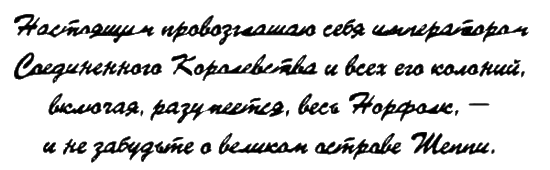 Настоящим провозглашаю себя императором
Соединенного Королевства и всех его колоний,
включая, разумеется, весь Норфолк, —
и не забудьте о великом острове Шеппи.